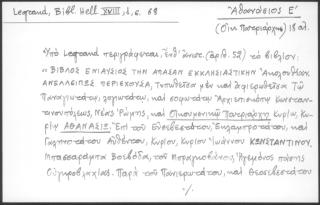 Legrand, Bibl. Hell. XVIII, 1, σ. 68
Ἀθανάσιος Ε΄
(Οἰκ. Πατριάρχης) 18 αἰ.
Ὑπὸ Legrand περιγράφεται, (ἀριθ. 52) τὸ βιβλίον:
"ΒΙΒΛΟΣ ΕΝΙΑΥΣΙΟΣ ΤΗΝ ΑΠΑΣΑΝ ΕΚΚΛΗΣΙΑΣΤΙΚΗΝ Ἀκολουθίαν
ΑΝΕΛΛΕΙΠΩΣ ΠΕΡΙΕΧΟΥΣΑ, Τυπωθεῖσα μὲν καὶ ἀφιερωθεῖσα Τῷ
Παναγιωτάτῳ, λογιωτάτῳ, καὶ σοφωτάτῳ Ἀρχιεπισκόπῳ Κωνσταν-
τινουπόλεως, Νέας Ῥώμης, καὶ Οἰκουμενικῷ Πατριάρχῃ Κυρίῳ, Κυ-
ρίῳ ΑΘΑΝΑΣΙῼ. Ἐπὶ τοῦ Εὐσεβεστάτου, Ἐκλαμπροτάτου, καὶ
Γαληνοτάτου Αὐθέντου, Κυρίου, Κυρίου Ἰωάννου ΚΩΝΣΤΑΝΤΙΝΟΥ,
Μπασσαράμπα Βοεβόδα, τοῦ Μπραγκοβάνου, Ἡγεμόνος πάσης
Οὑγγροβλαχίας. Παρὰ τοῦ Πανιερωτάτου, καὶ Θεοσεβεστάτου
./.